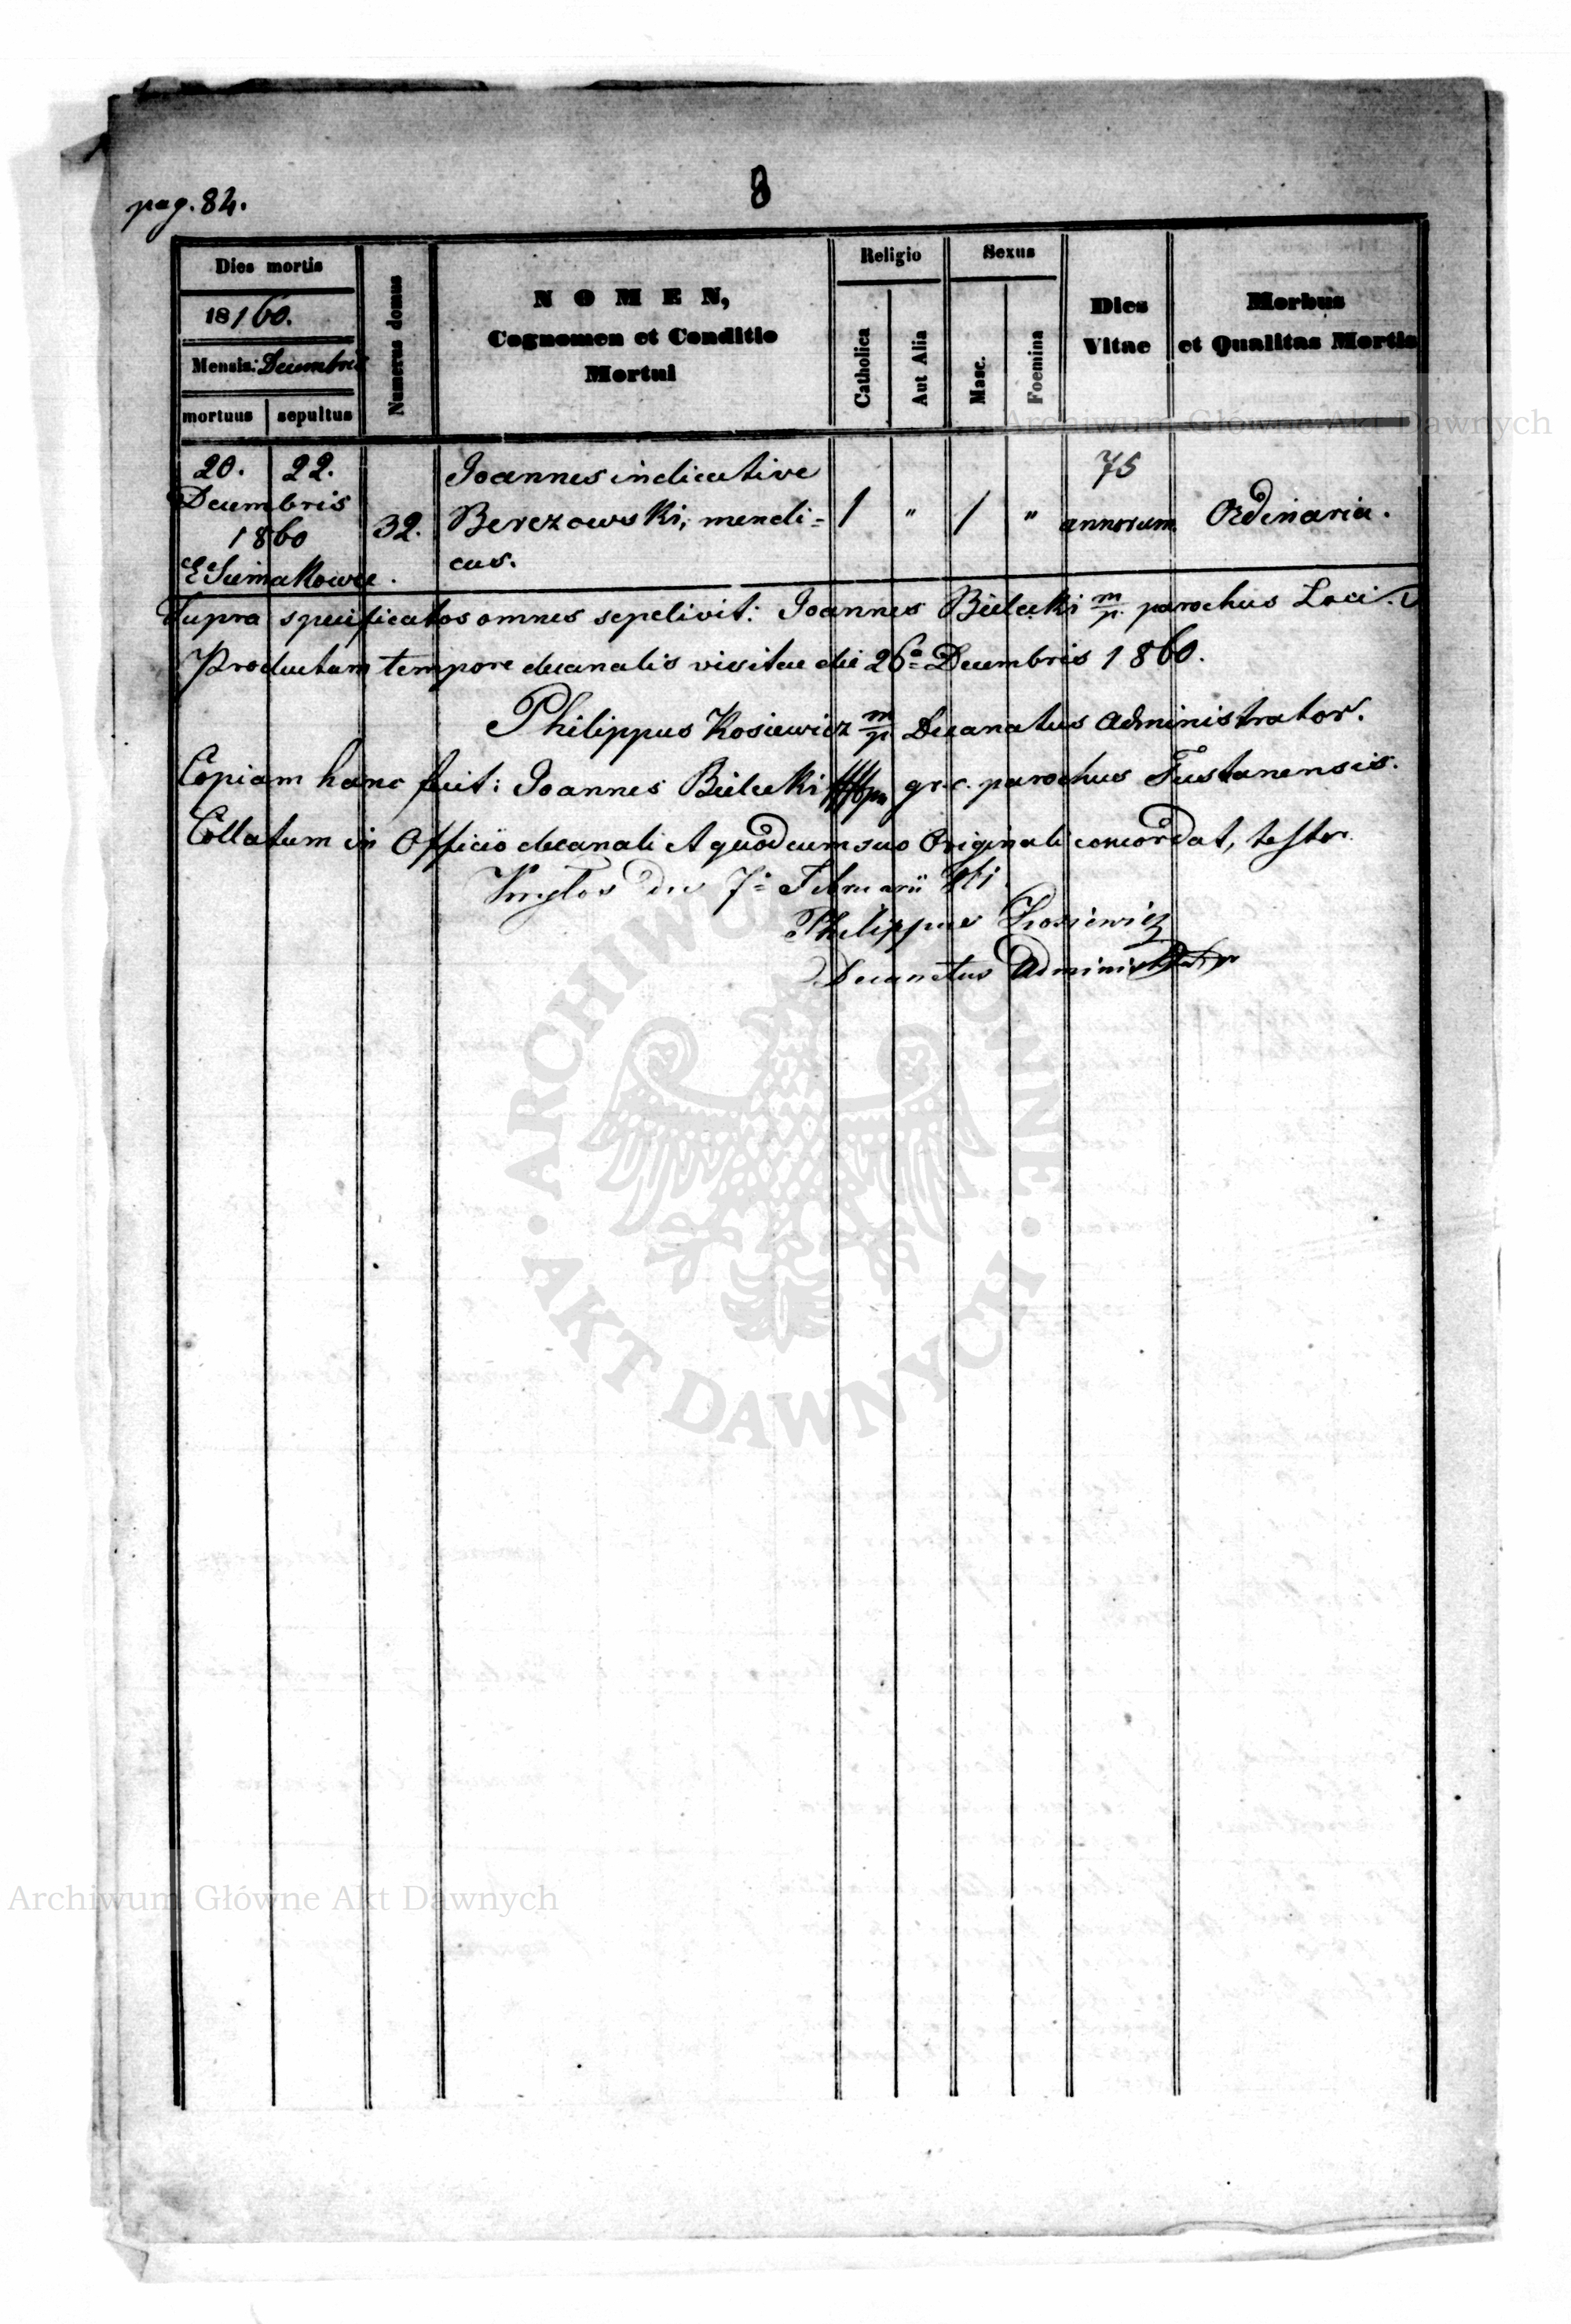 pag. 84.
8
Dies mortis
18160.
Mensis: Decembris
mortuus
sepultus
Numerus domus
NOMEN,
Cognomen et Conditio
Mortui
Religio
Catholica
Aut Alia
Sexus
Masc.
Foemina
Dies
Vitae
Morbus
et Qualitas Mortis
Archiwum Główne Akt Dawnych
20. 22.
Decembris
1860
32.
Joannes indicative
Berezowski, mendi=
cus.
1 " 1 "
75
annorum
Ordinaria.
Supra specificatos omnes sepelivit: Joannes Bielecki m/p. parochus Loci.
Productum tempore decanalis visitae die 26a Decembris 1860.
Philippus Kosiewicz m/p Decanatus Administrator.
Copiam hanc fecit: Joannes Bielecki gr. c. parochus Fustanensis.
Collatum in Officio decanali et quod cum suo Originali concordat, testor.
die 7a Februarii
Philippus Kosiewicz
Decanatus Administrator
ARCHIWUM GŁÓWNE
AKT DAWNYCH
Archiwum Główne Akt Dawnych